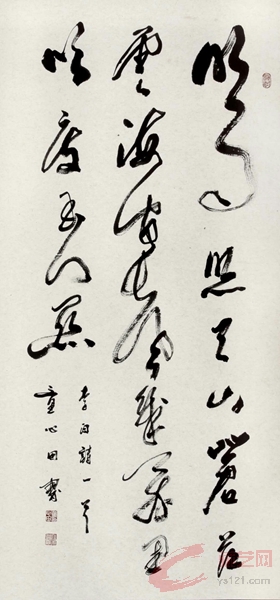 明月照天山蒼茫
雲海間長風幾萬里
吹度玉門關
李白詩一首
童心田書
艺网